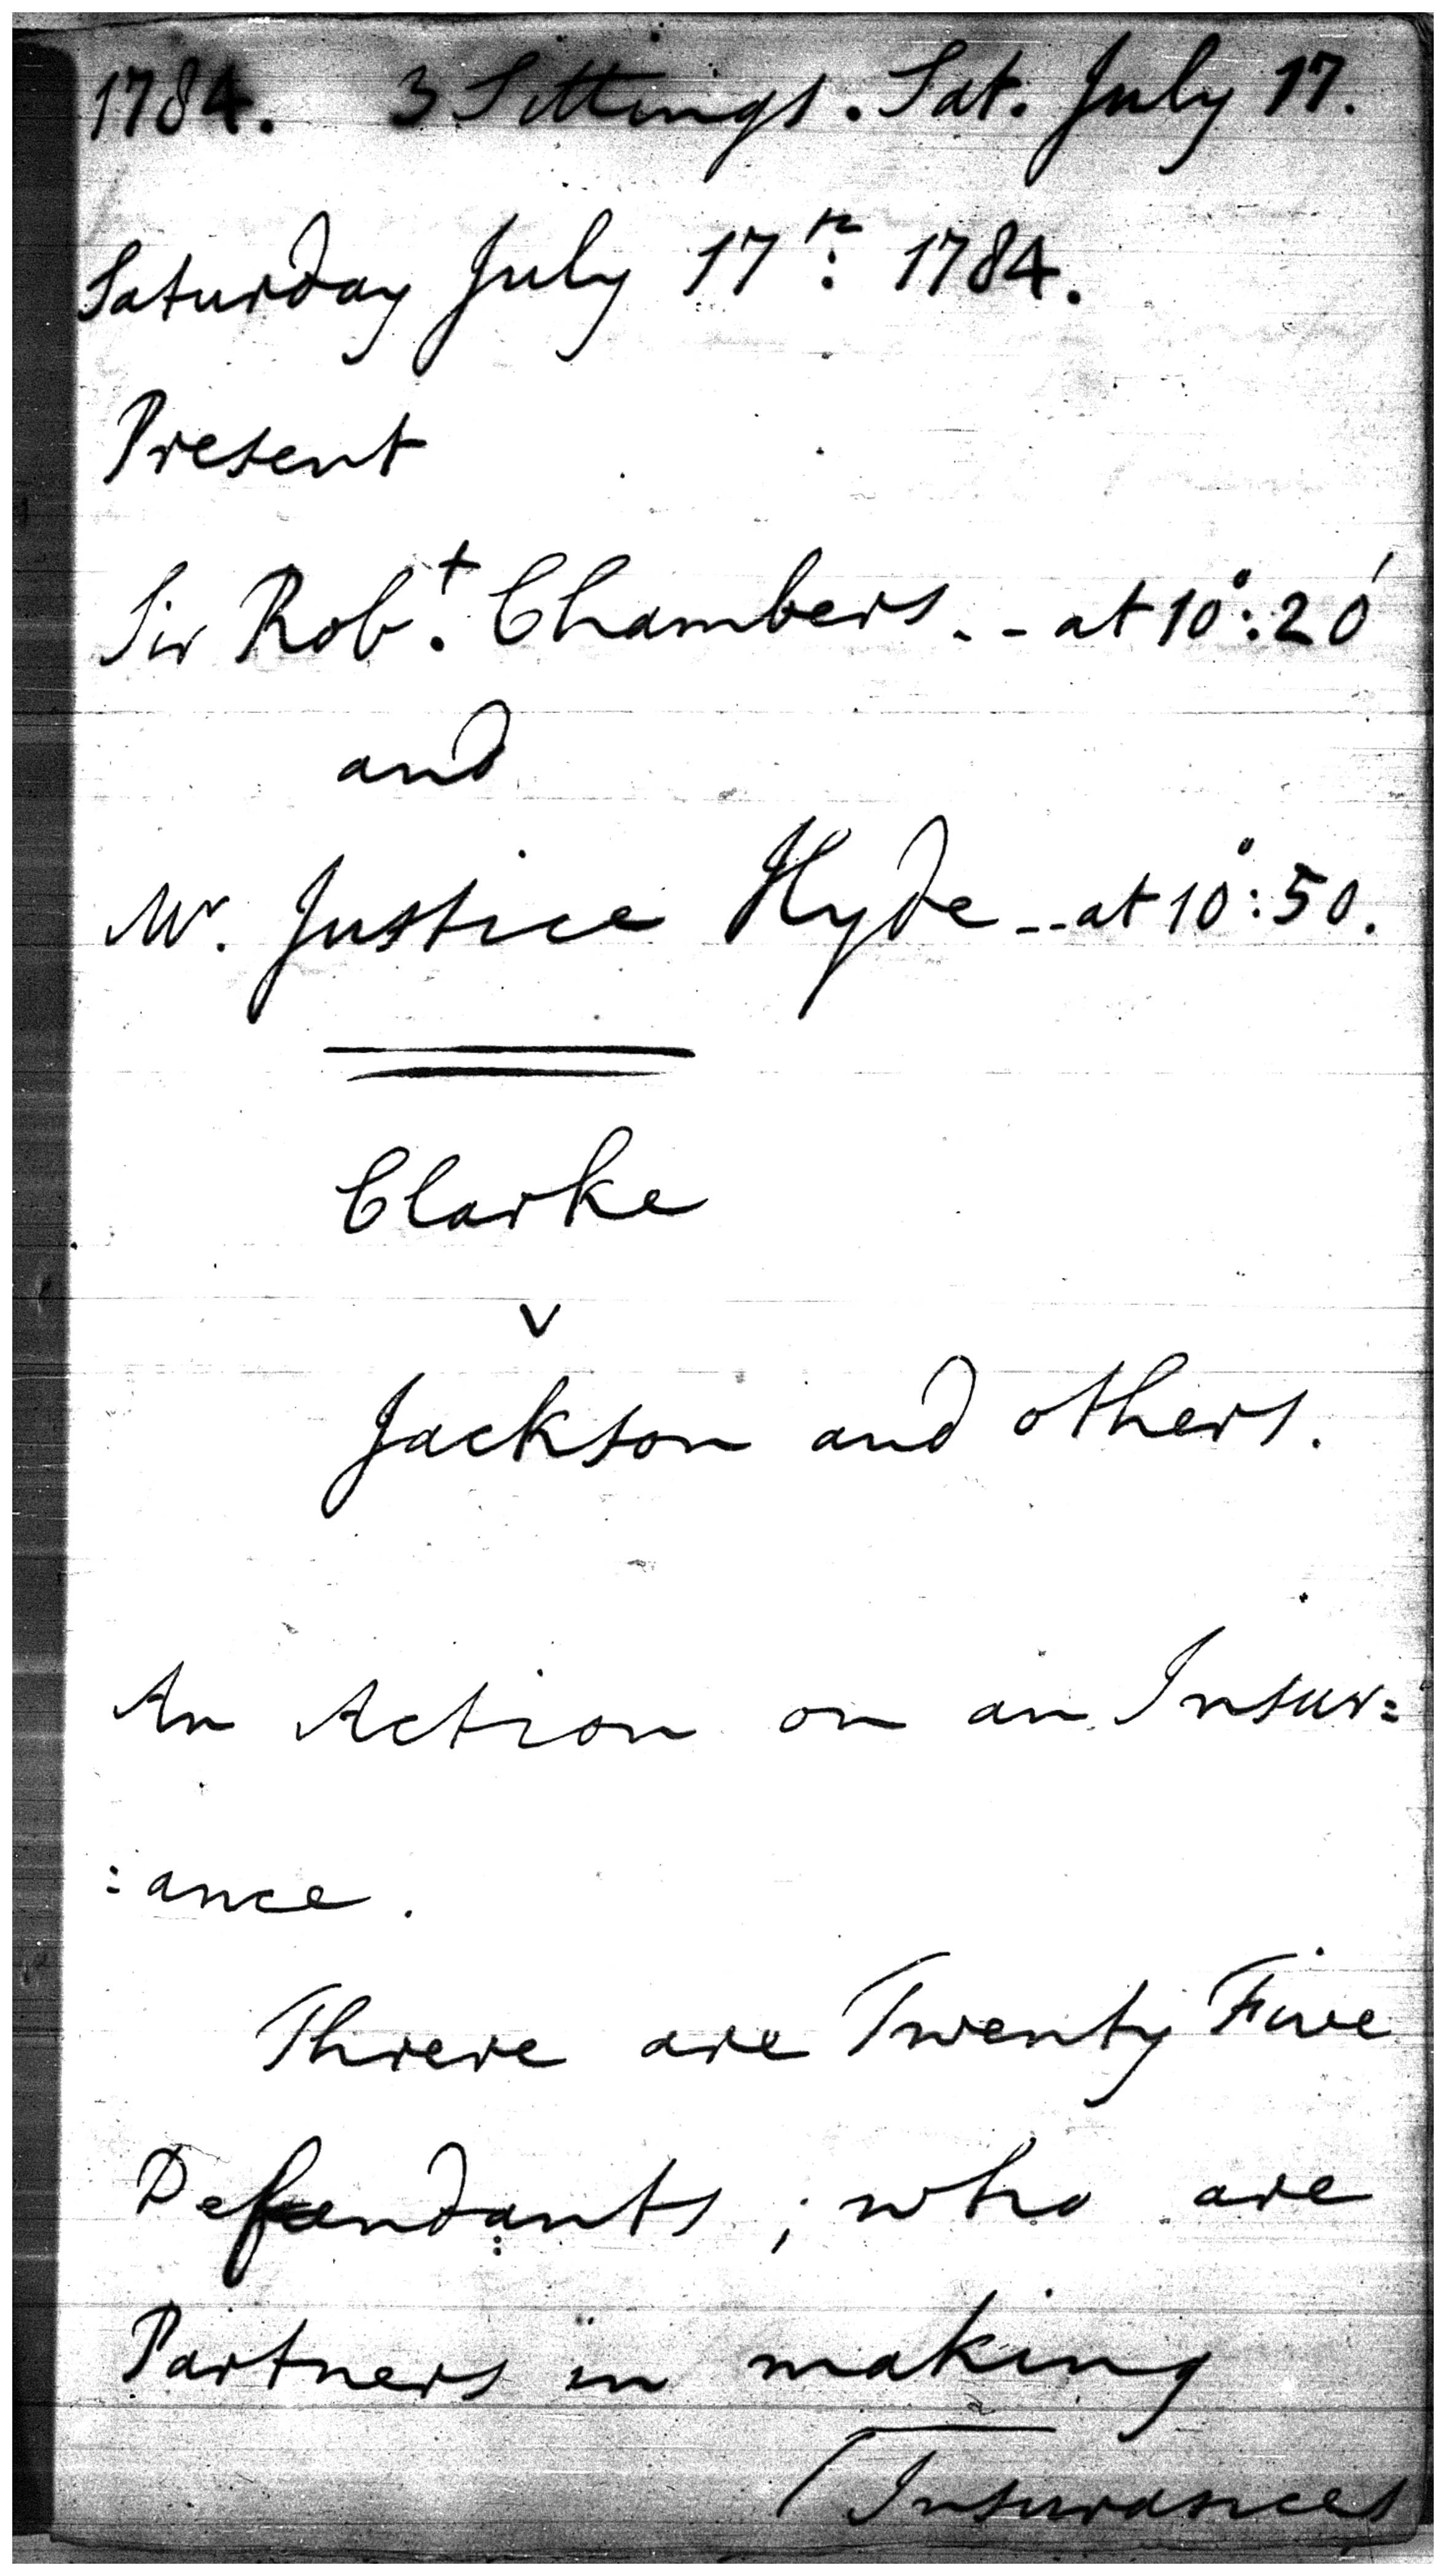 1784. 3 Sittings. Sat. July 17.
Saturday July 17th: 1784.
Present
Sir Robt. Chambers -- at 10°:20'
and
Mr. Justice Hyde -- at 10°:50.
Clarke
v
Jackson and others.
An Action on an Insur=
:ance.
Threre are Twenty Five
Defendants; who are
Partners in making
Insurances